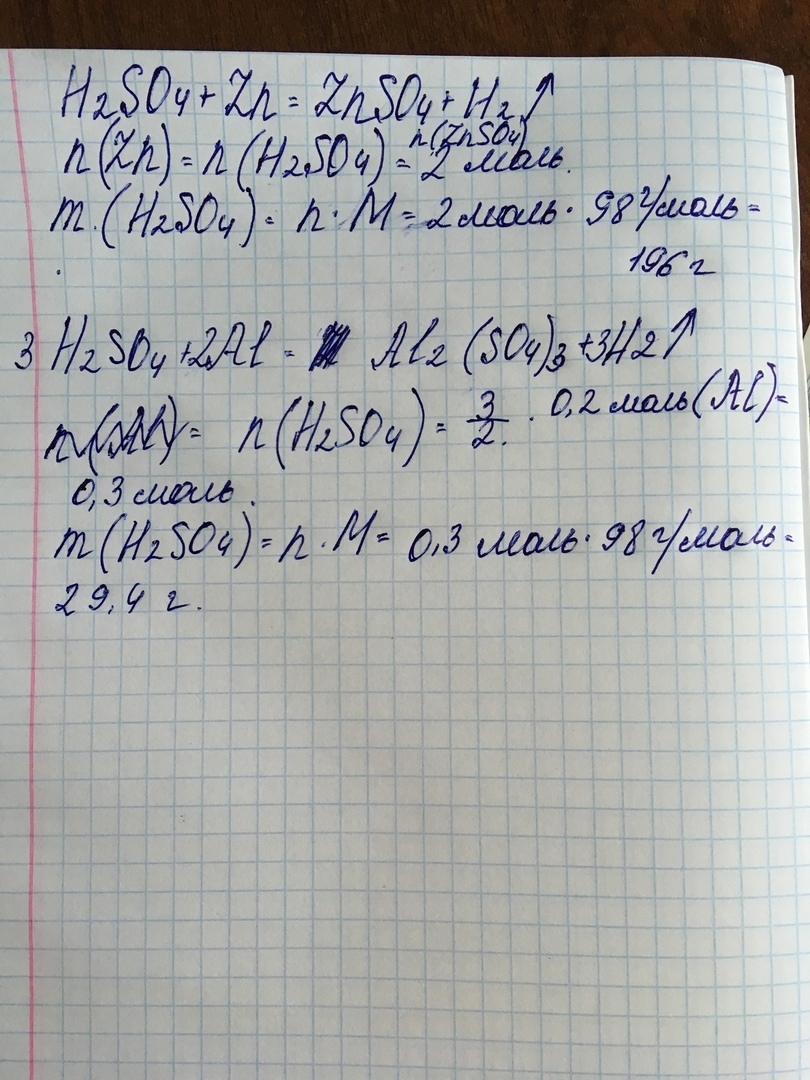 H₂SO₄ + Zn = ZnSO₄ + H₂↑
n(ZnSO₄)
n(Zn) = n(H₂SO₄) = 2 моль.
m.(H₂SO₄) = n · M = 2 моль · 98 г/моль =
196 г
3 H₂SO₄ + 2Al = Al₂(SO₄)₃ + 3H2↑
n(H₂SO₄) = 3/2. · 0,2 моль (Al) =
0,3 моль.
m(H₂SO₄) = n · M = 0,3 моль · 98 г/моль =
29,4 г.